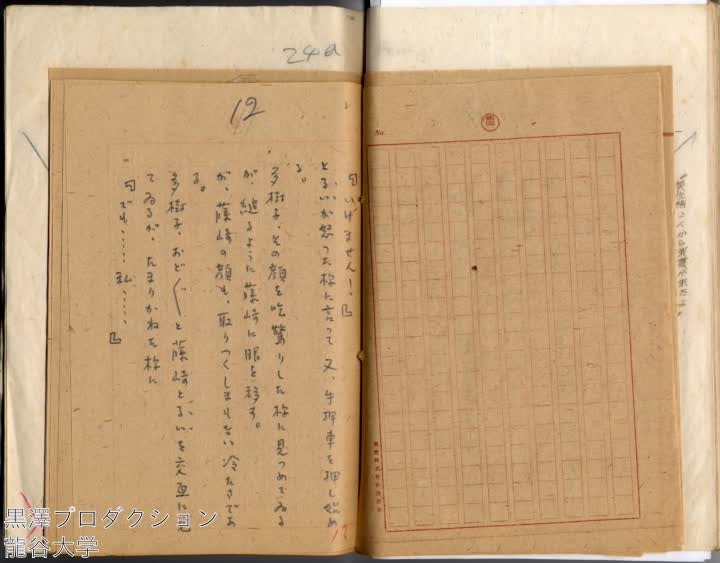 24a
12
「いけません！」
とるいが怒った様に言って又、乳母車を押し始め
る。
多樹子、その顔を吃驚りした様に見つめてゐる
が、縋るように藤崎に眼を移す。
が、藤崎の顔も、取りつくしまもない冷たさであ
る。
多樹子、おど〱と藤崎とるいを交互に見
てゐるが、たまりかねた様に
「でも……私……」
No.
12
黒澤プロダクション
龍谷大学